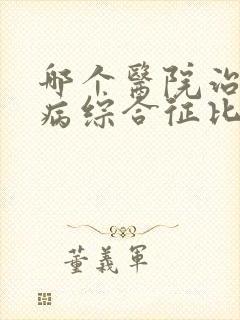 哪个醫院治
病综合征比
董義軍